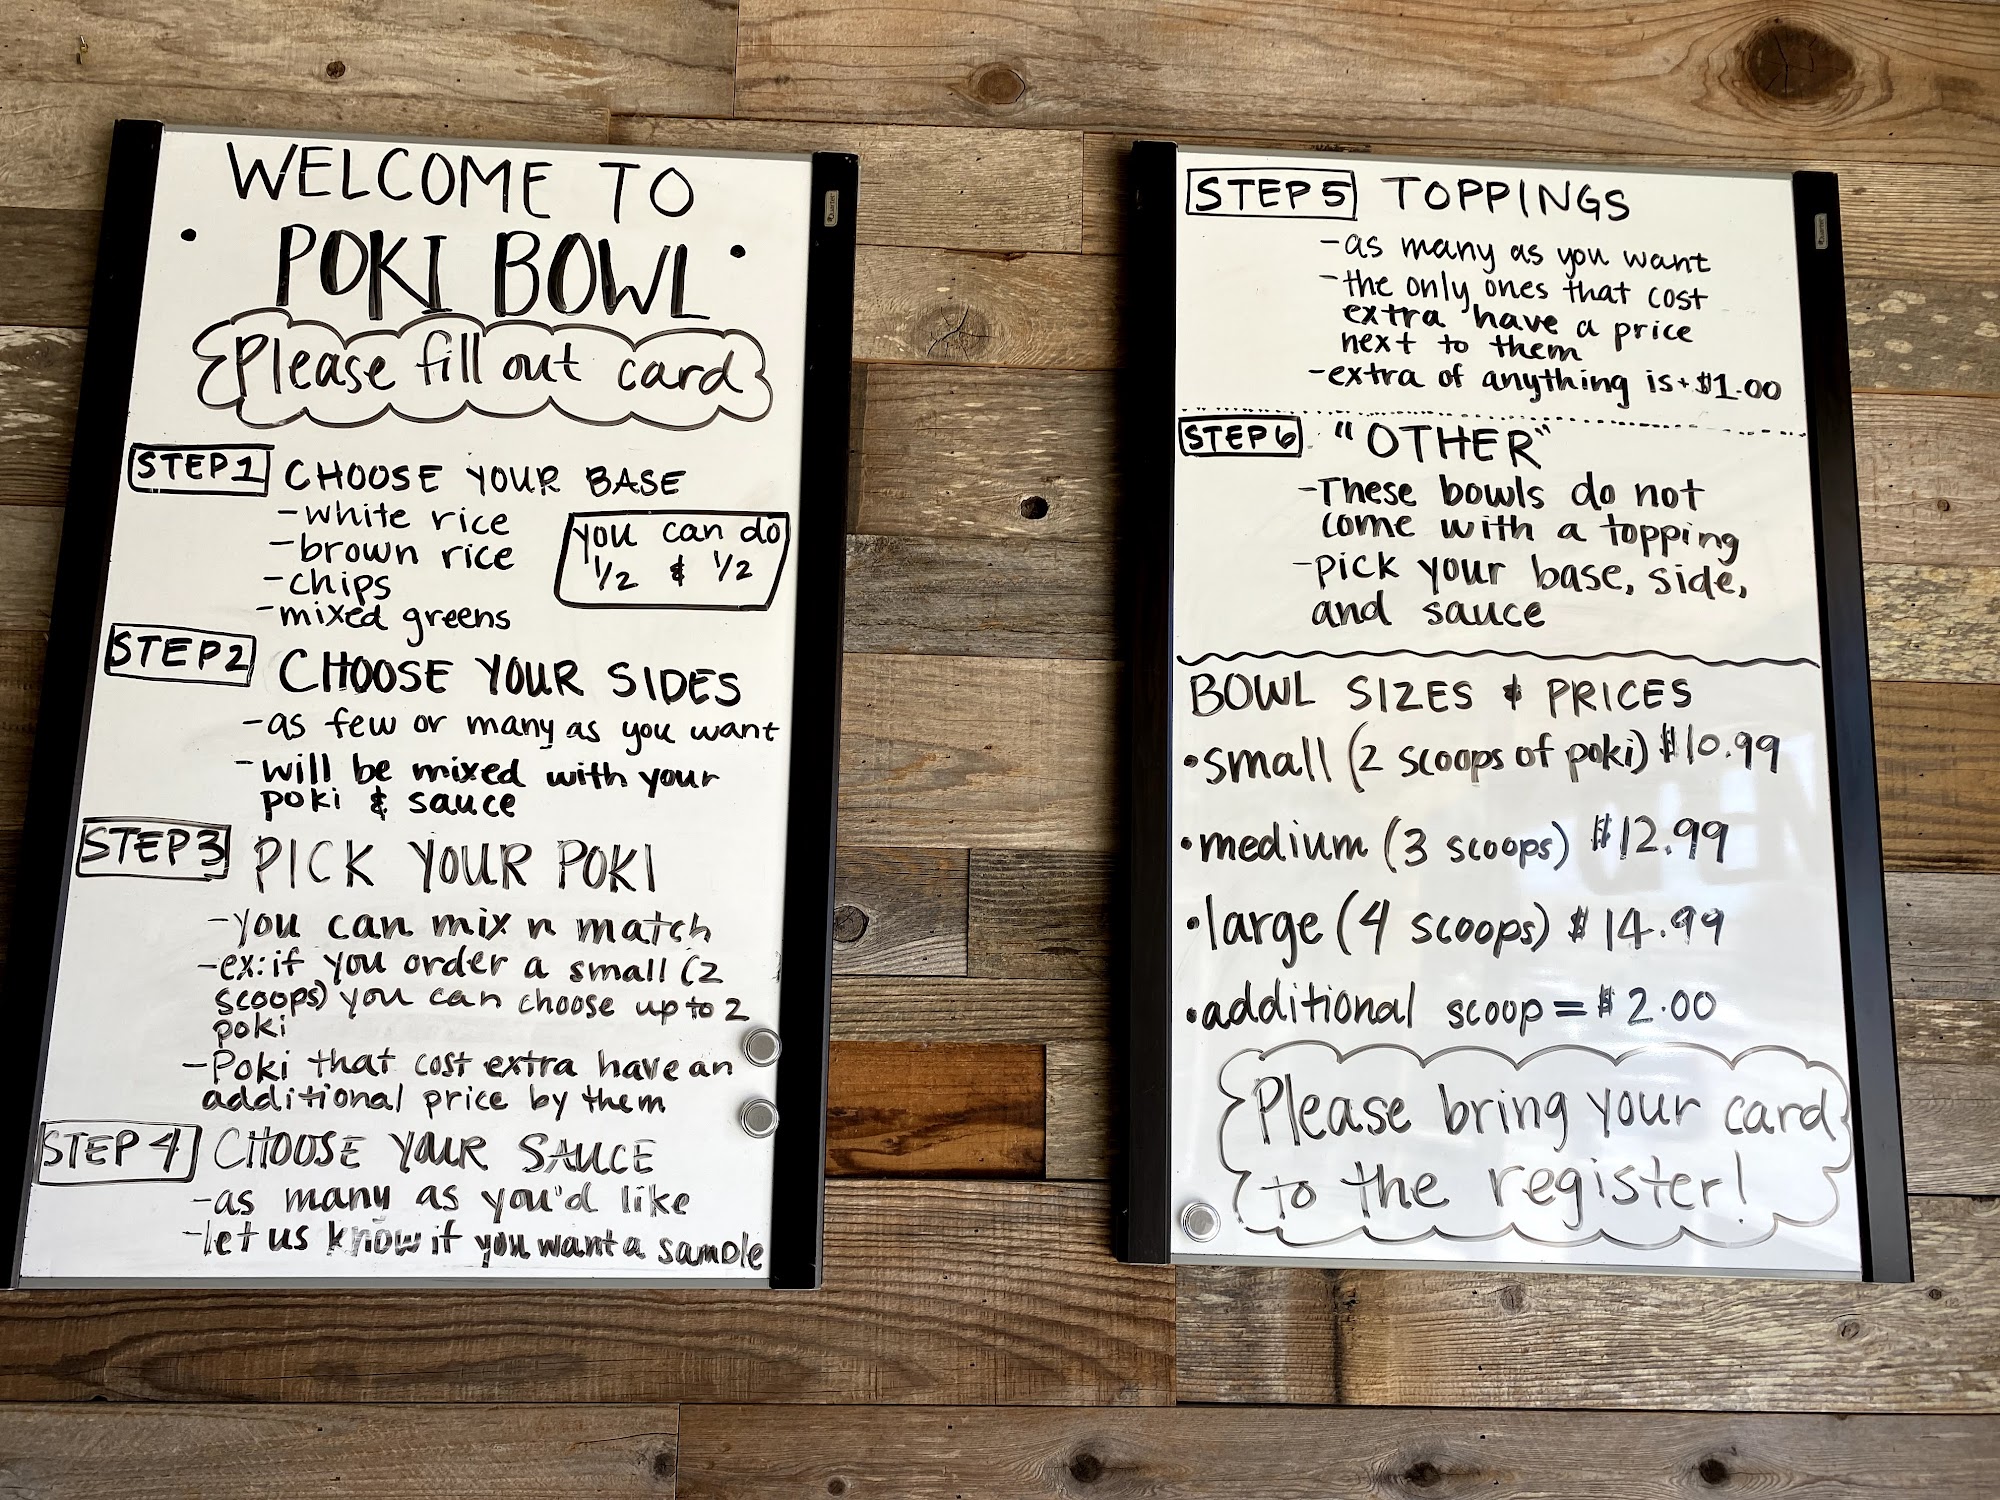 WELCOME TO
• POKI BOWL •
Please fill out card
STEP 1 CHOOSE YOUR BASE
-white rice
-brown rice
-chips
-mixed greens
you can do
1/2 & 1/2
STEP 2 CHOOSE YOUR SIDES
-as few or many as you want
-will be mixed with your
poki & sauce
STEP 3 PICK YOUR POKI
-you can mix n match
-ex: if you order a small (2
scoops) you can choose up to 2
poki
-Poki that cost extra have an
additional price by them
STEP 4 CHOOSE YOUR SAUCE
-as many as you'd like
-let us know if you want a sample
Quartet
STEP 5 TOPPINGS
-as many as you want
-the only ones that cost
extra have a price
next to them
-extra of anything is + $1.00
STEP 6 "OTHER"
-These bowls do not
come with a topping
-pick your base, side,
and sauce
BOWL SIZES & PRICES
•small (2 scoops of poki) $10.99
•medium (3 scoops) $12.99
•large (4 scoops) $14.99
•additional scoop = $2.00
Please bring your card
to the register!
Quartet